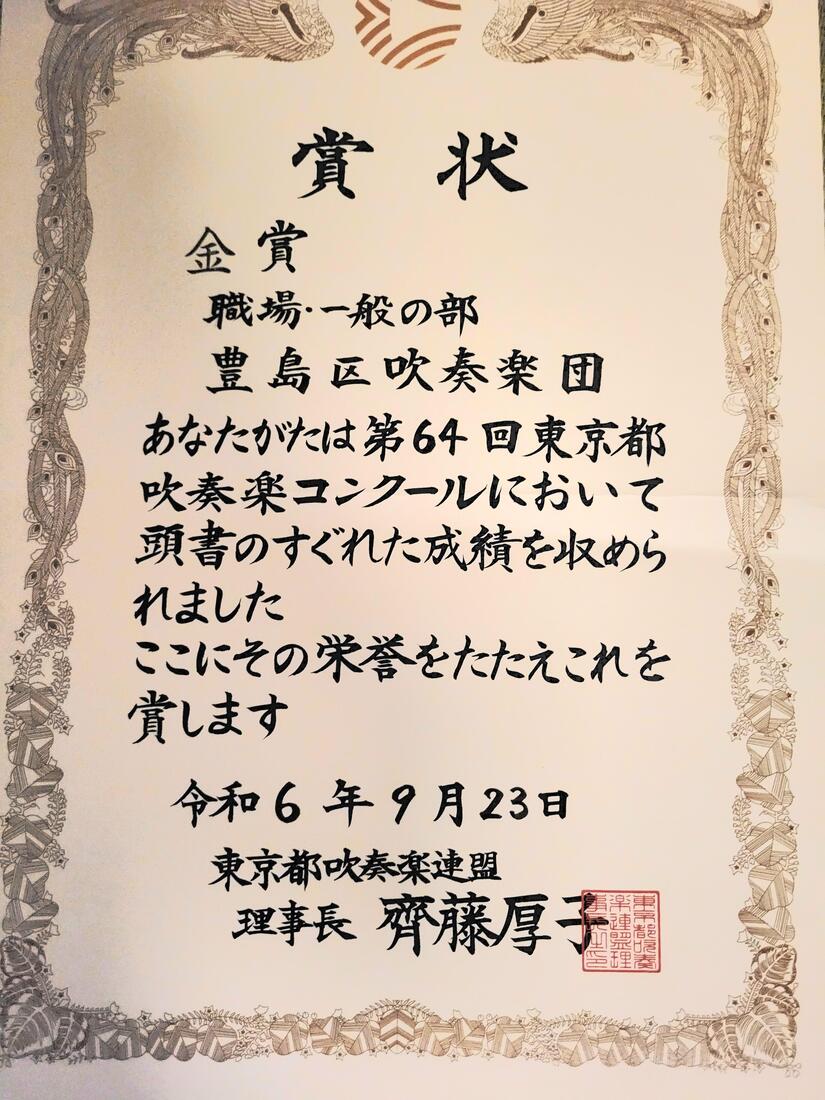 賞状
金賞
職場・一般の部
豊島区吹奏楽団
あなたがたは第64回東京都
吹奏楽コンクールにおいて
頭書のすぐれた成績を収めら
れました
ここにその栄誉をたたえこれを
賞します
令和6年9月23日
東京都吹奏楽連盟
理事長 齊藤厚子